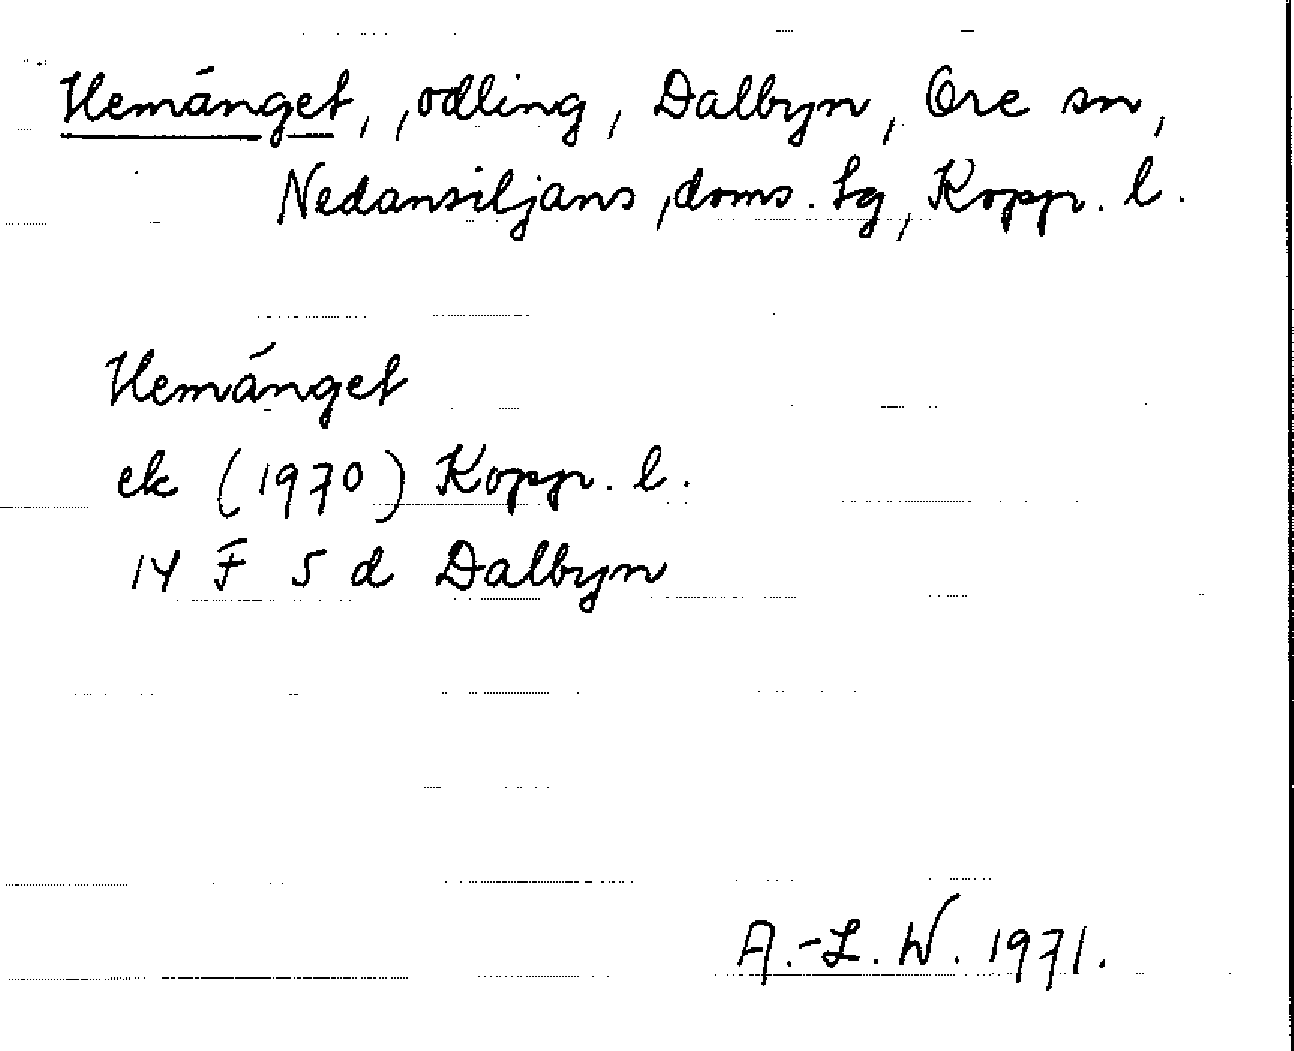 Hemänget, ,odling, Dalbyn, Ore sn,
Nedansiljans ,doms. lg, Kopp. l.
Hemänget
ek (1970) Kopp. l.
14 F 5 d Dalbyn
A.-L. W. 1971.